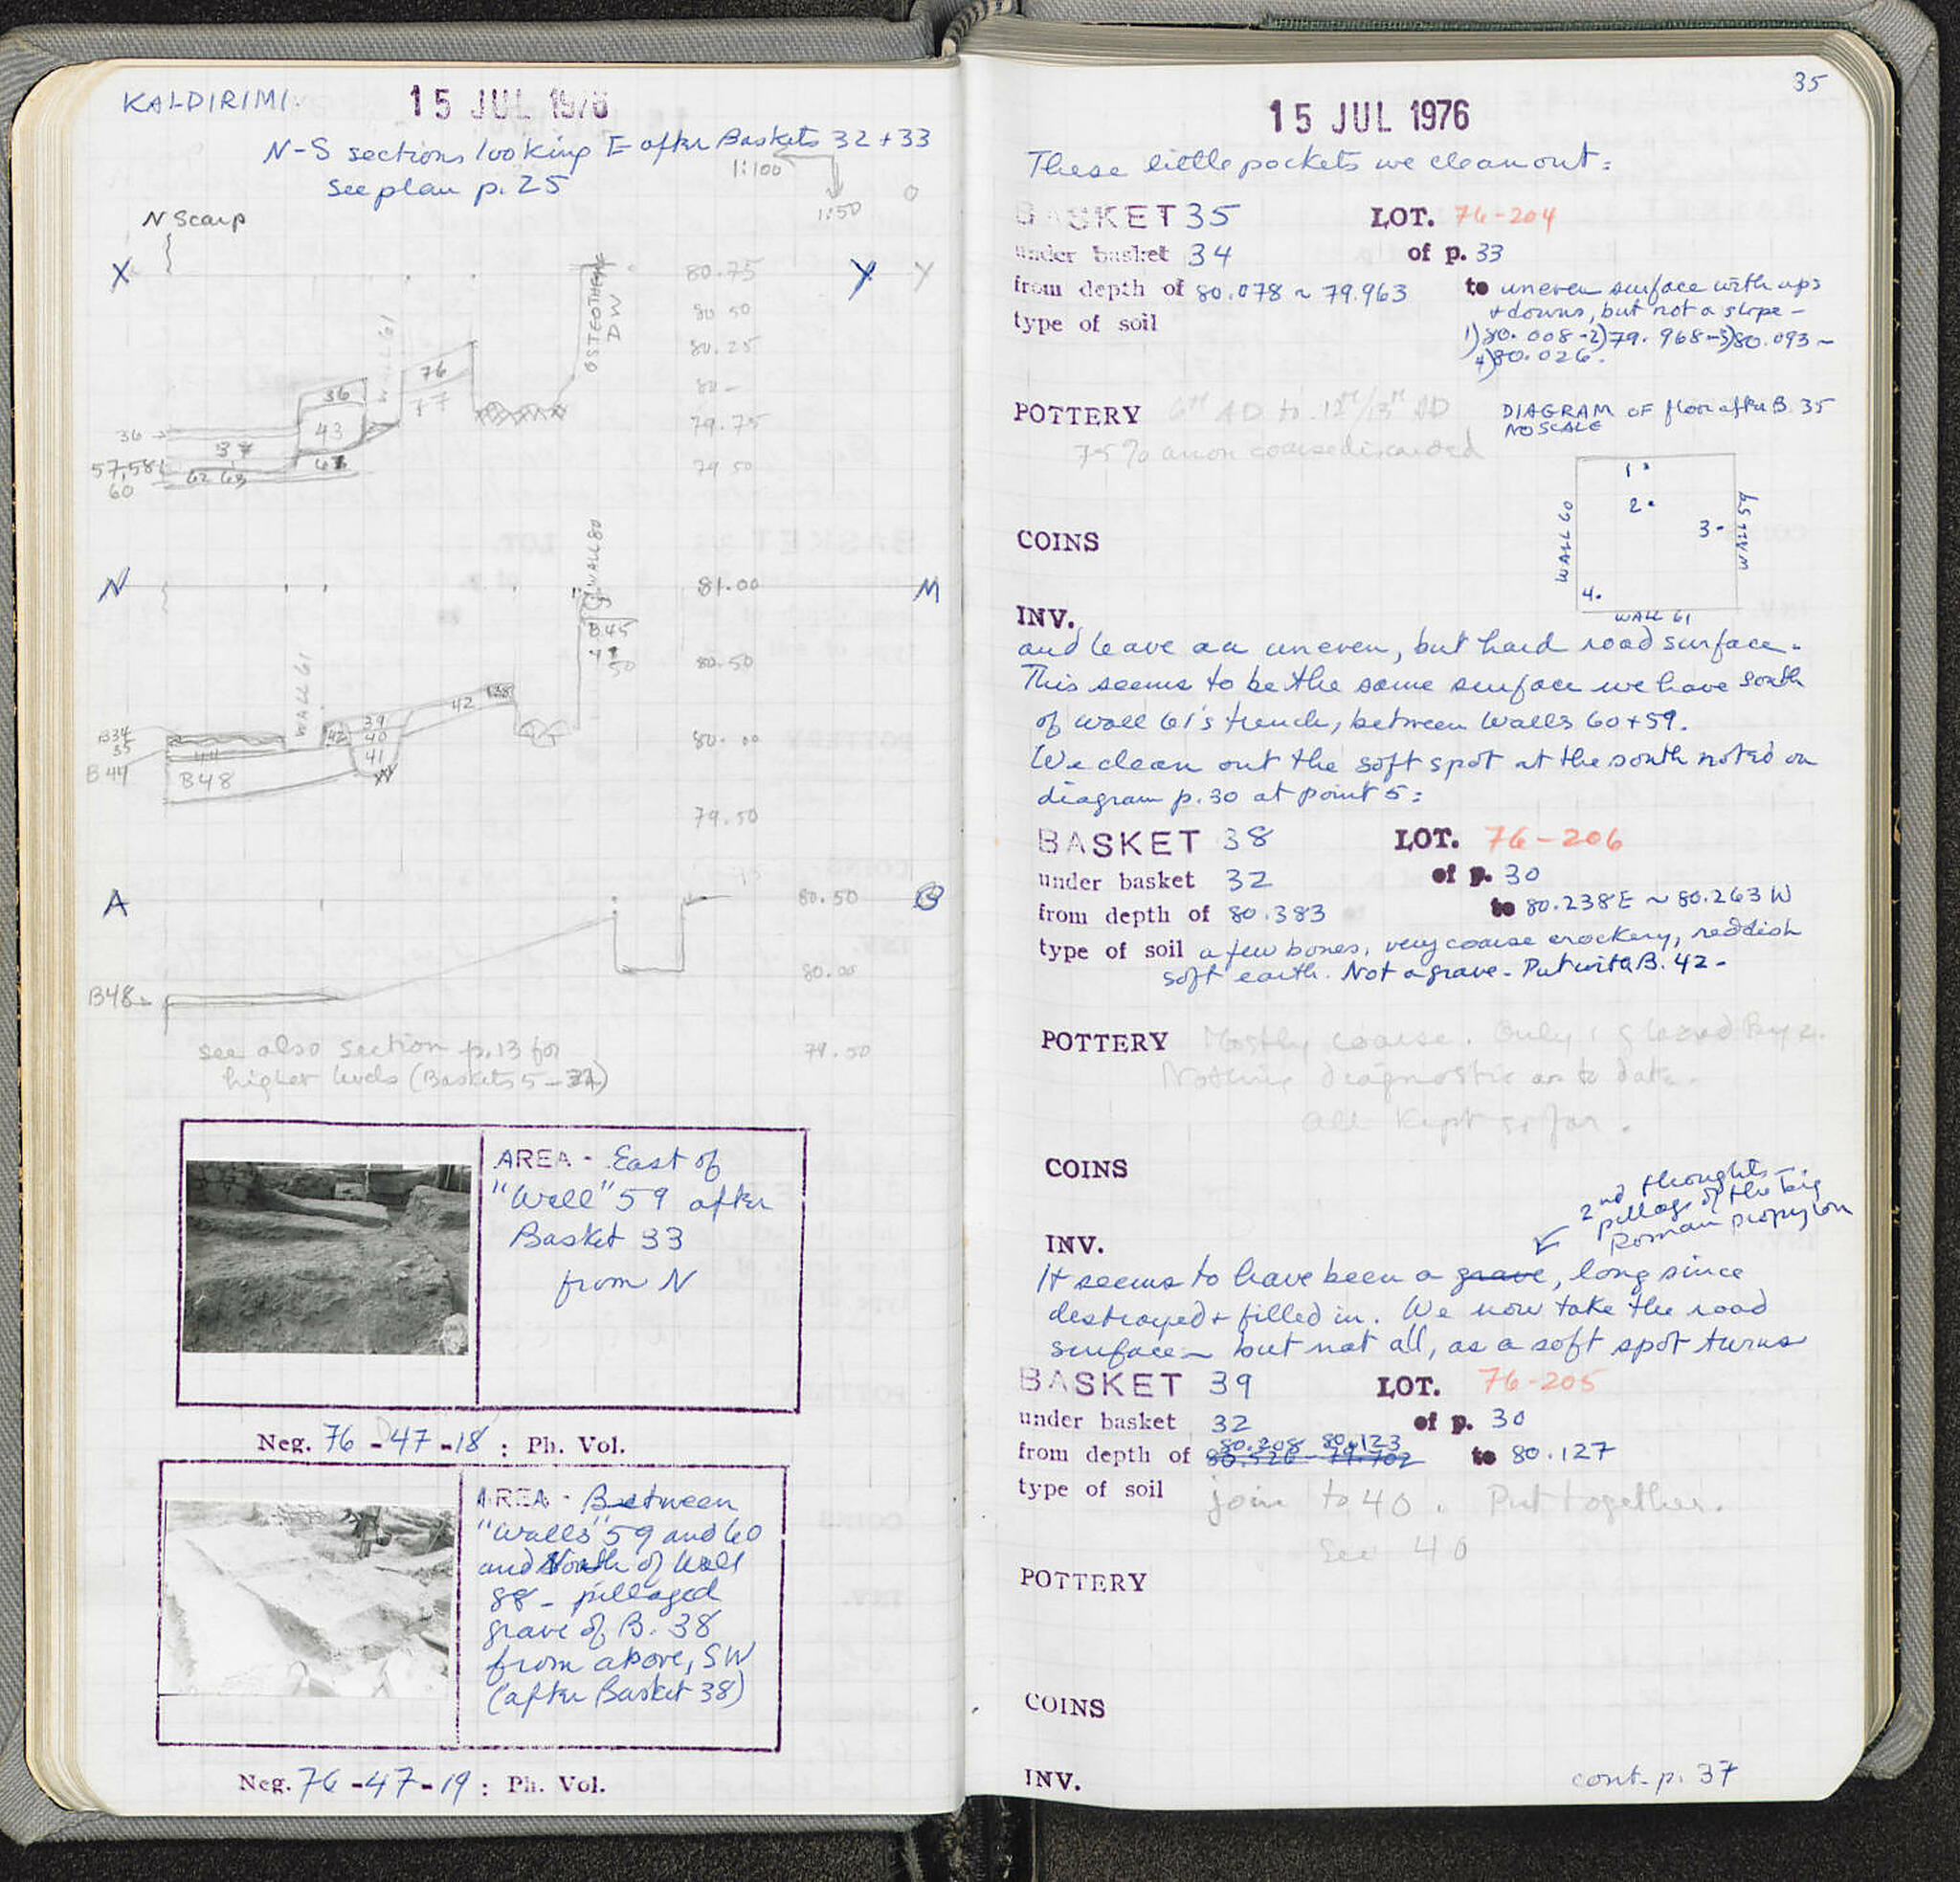 KALDIRIMI.
15 JUL 1976
N-S sections looking E after Baskets 32 + 33
see plan p. 25
1:100
1:50
N Scarp
X
Y
Y
80.75
80 50
80.25
80 -
79.75
79 50
OSTEOTHEKE
DW
76
77
36
43
36
37
57,58
60
62 63
WALL 80
N
M
81.00
80.50
80.00
79.50
B.45
50
WALL 61
42
38
39
40
41
42
B34
35
B 44
44
B48
A
B
80.50
80.00
79.50
B48
see also section p. 13 for
higher levels (Baskets 5 - 31)
AREA - East of
"Wall" 59 after
Basket 33
from N
Neg. 76 - 47 - 18 : Ph. Vol.
AREA - Between
"Walls" 59 and 60
and South of Wall
88 - pillaged
grave of B. 38
from above, SW
(after Basket 38)
Neg. 76 - 47 - 19 : Ph. Vol.
35
15 JUL 1976
These little pockets we clean out:
BASKET 35 LOT. 76-204
under basket 34 of p. 33
from depth of 80.078 ~ 79.963 to uneven surface with ups
+ downs, but not a slope -
1) 80.008 - 2) 79.968 - 3) 80.093 ~
4) 80.026.
type of soil
POTTERY 6th AD to 12th/13th AD
75% anon coarse discarded
DIAGRAM OF floor after B. 35
NO SCALE
1
2
3
4
WALL 60
WALL 59
WALL 61
COINS
INV.
and leave an uneven, but hard road surface.
This seems to be the same surface we have south
of wall 61's trench, between Walls 60 + 59.
We clean out the soft spot at the south noted on
diagram p. 30 at point 5:
BASKET 38 LOT. 76-206
under basket 32 of p. 30
from depth of 80.383 to 80.238E ~ 80.263 W
type of soil a few bones, very coarse crockery, reddish
soft earth. Not a grave - Put with B. 42 -
POTTERY Mostly coarse. Only 1 glazed Byz.
Nothing diagnostic as to date.
All kept so far.
COINS
2nd thoughts -
pillage of the big
Roman propylon
INV.
It seems to have been a grave, long since
destroyed + filled in. We now take the road
surface ~ but not all, as a soft spot turns
BASKET 39 LOT. 76-205
under basket 32 of p. 30
80.208 80.123
from depth of 80.520 - 79.702 to 80.127
type of soil join to 40. Put together.
See 40
POTTERY
COINS
INV.
cont. p. 37